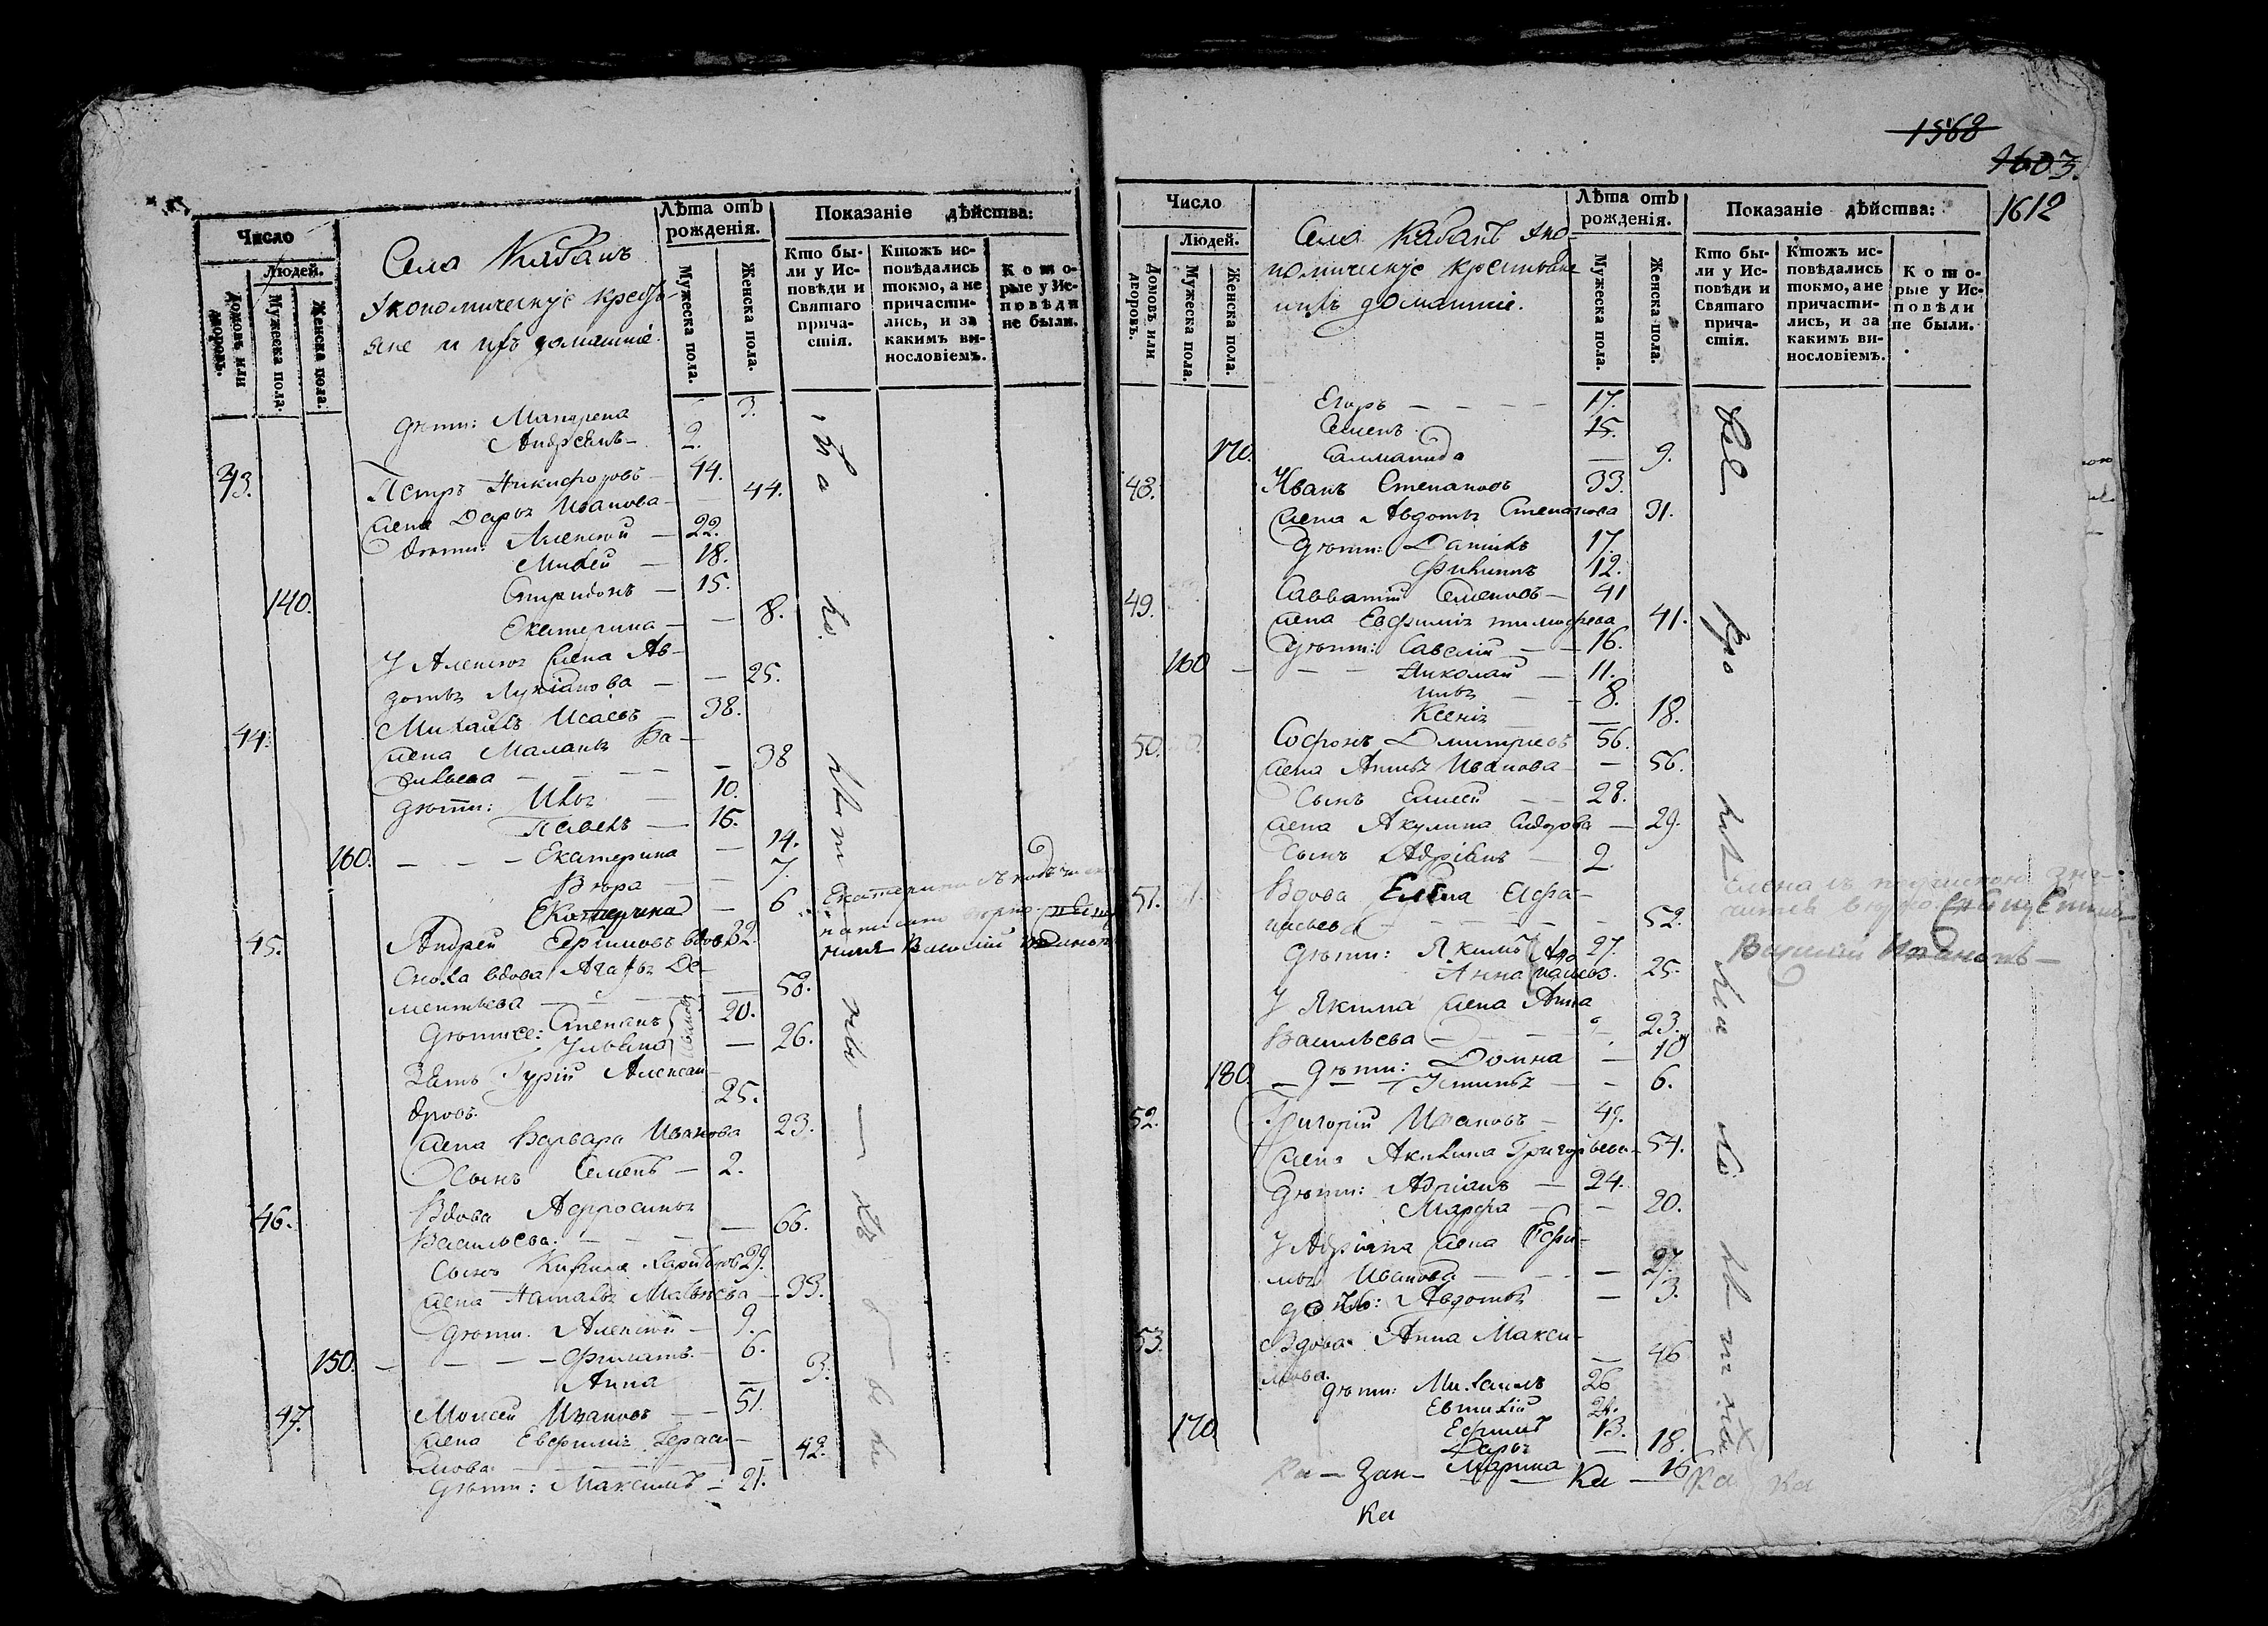 Число
Людей.
Домовъ или дворовъ.
Мужеска пола.
Женска пола.
Села Кабанъ
Экономическіе кресть-
яне и ихъ домашніе.
Лѣта отъ рожденія.
Мужеска пола.
Женска пола.
Показаніе дѣйства:
Кто бы-
ли у Ис-
повѣди и
Святаго
прича-
стія.
Ктожъ ис-
повѣдались
токмо, а не
причасти-
лись, и за
какимъ ви-
нословіемъ.
Кото-
рые у Ис-
повѣди
не были.
дѣти: Мавдрена 3.
Андреянъ 2.
43. Петръ Никифоровъ 44.
жена Дарья Иванова 44.
дѣти: Алексѣй 22.
Михей 18.
Спиридонъ 15.
140. Екатерина 8.
У Алексѣя жена Ав-
дотья Лукіанова 25.
44. Михаилъ Исаевъ 38.
жена Маланья Ва-
сильева 38
дѣти: Илья 10.
Павелъ 16.
160. Екатерина 14.
Вѣра 7.
Екатерина 6
45. Андрей Ефимовъ вдов. 32.
Сноха вдова Агафья Де-
ментьева 58.
дѣти ее: Степанъ 20.
Ульяна 26.
Зять Гурій Алексан-
дровъ 25.
жена Варвара Иванова 23.
Сынъ Семенъ 2.
46. Вдова Афросинья
Васильева. 66.
Сынъ Кирила 29.
жена Наталья Матвѣева 33.
дѣти: Алексѣй 9.
150. Филатъ 6.
Анна 3.
47. Моисей Ивановъ 51.
жена Евфимія Гераси-
мова 42.
дѣти: Максимъ 21.
1568
1603.
1612
Число
Людей.
Домовъ или дворовъ.
Мужеска пола.
Женска пола.
Села Кабанъ эко-
номическіе крестьяне
ихъ домашніе.
Лѣта отъ рожденія.
Мужеска пола.
Женска пола.
Показаніе дѣйства:
Кто бы-
ли у Ис-
повѣди и
Святаго
прича-
стія.
Ктожъ ис-
повѣдались
токмо, а не
причасти-
лись, и за
какимъ ви-
нословіемъ.
Кото-
рые у Ис-
повѣди
не были.
Егоръ 17.
Семенъ 15.
170. Саламанида 9.
48. Иванъ Степановъ 33.
жена Авдотья Степанова 31.
дѣти: Данилъ 17.
Филиппъ 12.
49. Савватій Семеновъ 41
жена Евфимія Тимофеева 41.
дѣти: Савелій 16.
160 Николай 11.
Илья 8.
Ксенія 18.
50. Софронъ Дмитріевъ 56.
жена Анна Иванова 56.
Сынъ Елисей 28.
жена Акулина Сидорова 29.
Сынъ Адріанъ 2.
51. Вдова Елена Афа-
насьева 52.
дѣти: Якимъ 27.
Анна 25.
У Якима жена Анна
Васильева 23.
дѣти: Домна 10
180. Устинья 6.
52. Григорій Ивановъ 49.
жена Акилина Григорьева 54.
дѣти: Адріанъ 24.
Марфа 20.
У Адріана жена Ефи-
мья Иванова 27.
дочь: Авдотья 3.
53. Вдова Анна Макси-
мова. 46
дѣти: Михаилъ 26
Евтихій 24.
170 Ефимъ 13.
Дарья 18.
Марина 16
Ка — Зан — Ка — Ка Ка
Ка